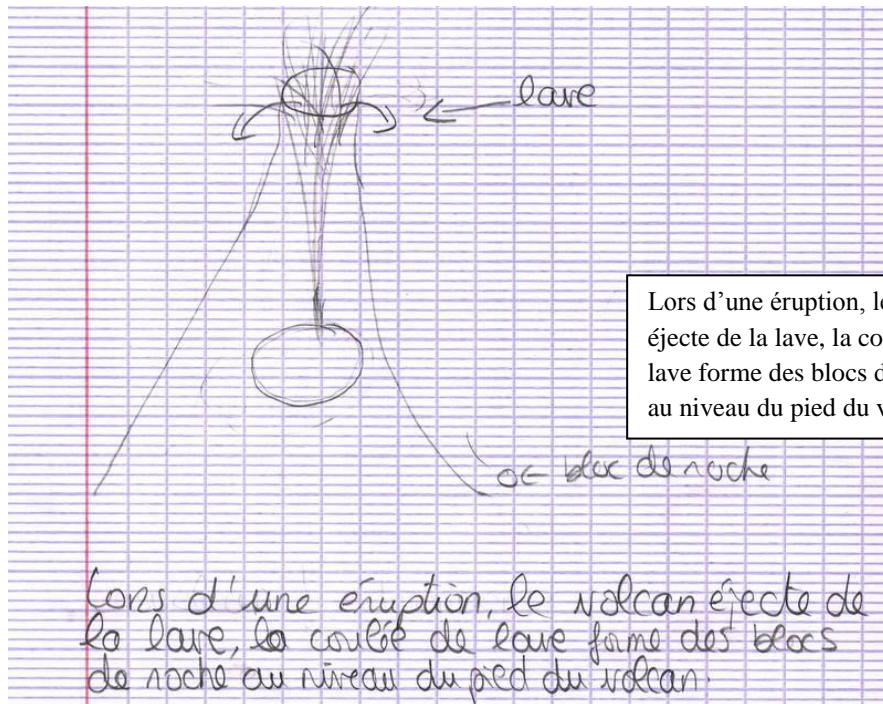 lave
Lors d'une éruption, le
éjecte de la lave, la co
lave forme des blocs d
au niveau du pied du v
bloc de roche
Lors d'une éruption, le volcan éjecte de
la lave, la coulée de lave forme des blocs
de roche au niveau du pied du volcan.